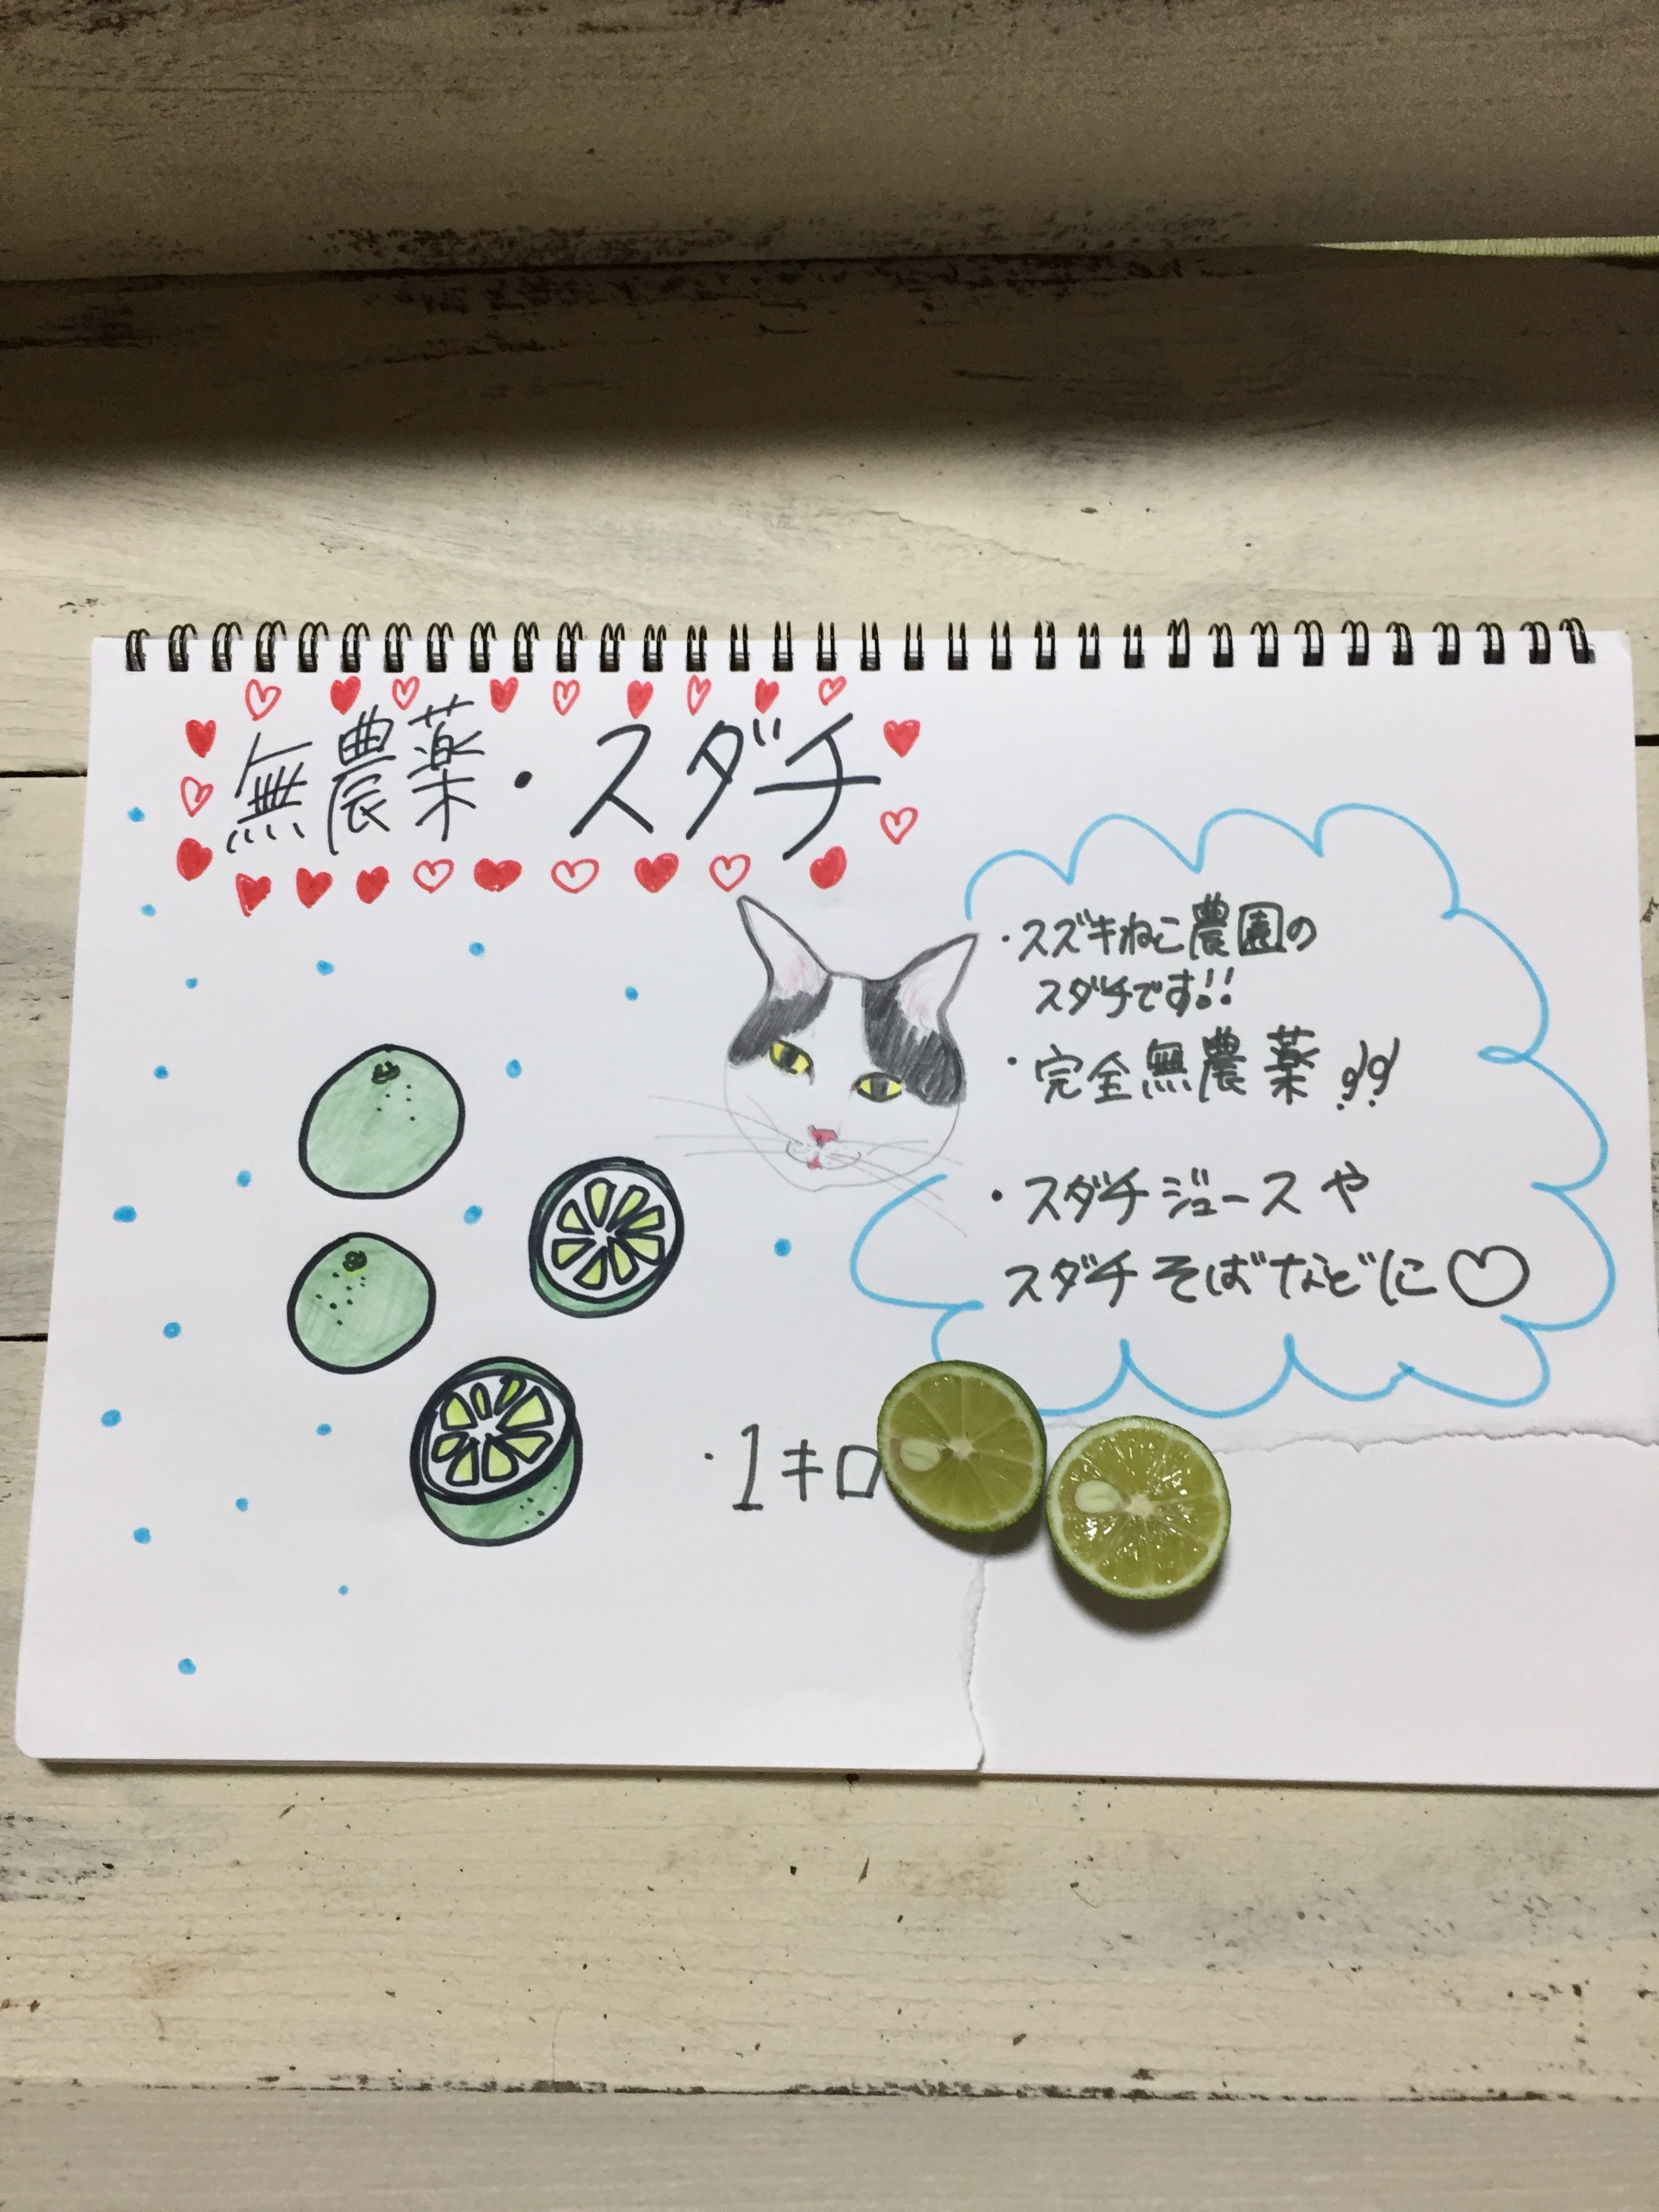 無農薬・スダチ
・スズキねこ農園の
スダチです!!
・完全無農薬!!
・スダチジュースや
スダチそばなどに♡
・1キロ